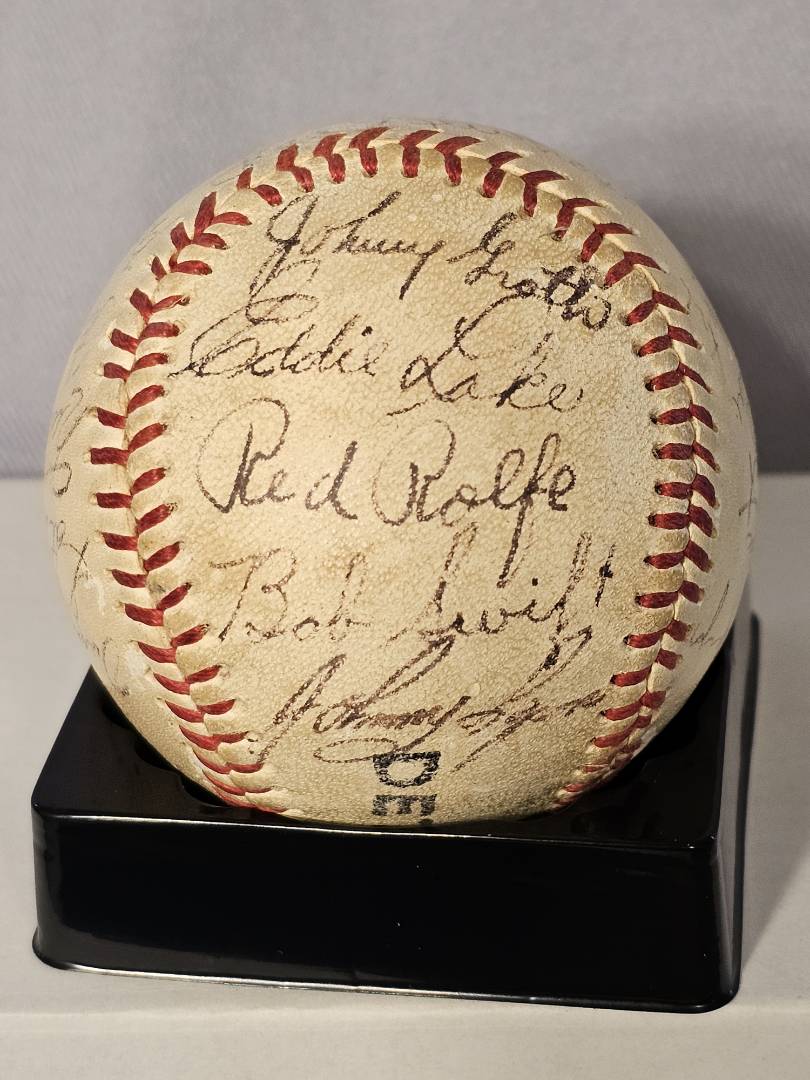 Johnny Groth
Eddie Lake
Red Rolfe
Bob Swift
Johnny Lipon
DET